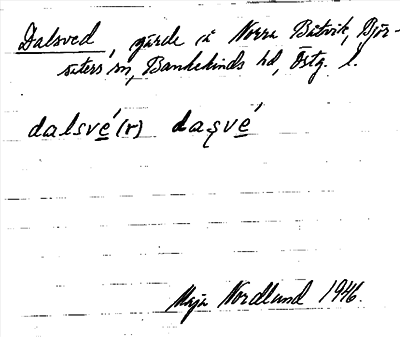 Dalsved, gärde i Norra Båtvik, Björ-
säters sn, Bankekinds hd, Östg. l.
dalsvé(r) das̨vé
Maja Nordlund 1946.